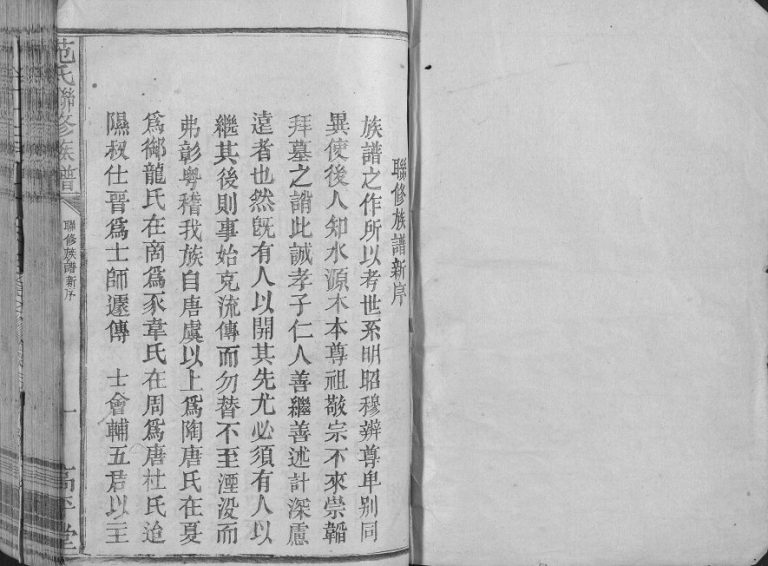 聯修族譜新序
族譜之作所以考世系明昭穆辨尊卑别同
異使後人知水源木本尊祖敬宗不來崇韜
拜墓之誚此誠孝子仁人善繼善述計深慮
遠者也然旣有人以開其先尤必須有人以
繼其後則事始克流傳而勿替不至湮沒而
弗彰粤稽我族自唐虞以上爲陶唐氏在夏
爲御龍氏在商爲豕韋氏在周爲唐杜氏迨
隰叔仕晉爲士師遞傳 士會輔五君以主
范氏聯修族譜
聯修族譜新序
一
高平堂